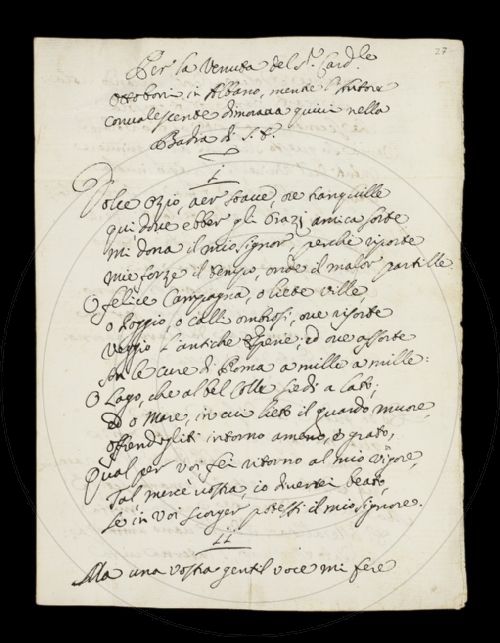 27
Per la Venuta del S.r Card.le
Ottoboni in Albano, mentre l'Autore
convalescente dimorava quivi nella
Badia di S. P.
I
Dolce ozio, aer soave, ore tranquille
qui, dove ebber gli Orazi amica sorte
mi dona il mio signor, perchè riporte
mie forze il tempo, onde il malor partille
O felice Campagna, o liete ville,
o Poggio, o calli ombrosi, ove risorte
Veggio l'antiche ; ed ove assorte
son le cure di Roma a mille a mille:
O Lago, che al bel Colle siedi a lato;
ed o Mare, in cui lieto il guardo muore,
offrendogliti intorno ameno, e grato,
Qual per voi fei ritorno al mio vigore,
Tal mercè vostra, io diverrei beato,
se in voi scorger potessi il mio signore.
II
Ma una vostra gentil voce mi fere